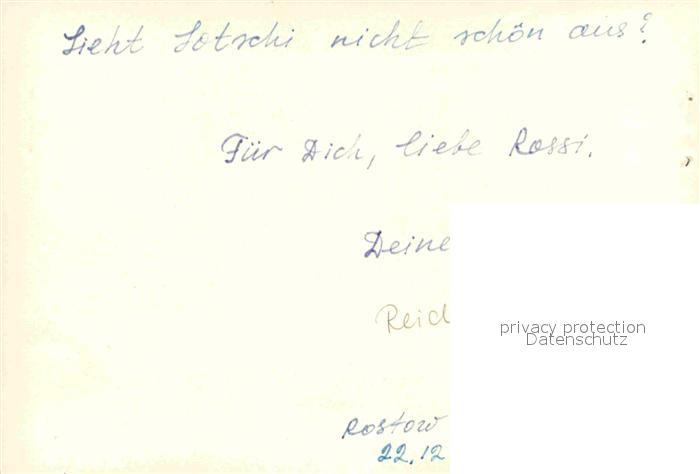 Sieht Sotschi nicht schön aus?
Für Dich, liebe Rossi.
Deine
Reid
privacy protection
Datenschutz
Rostow
22.12